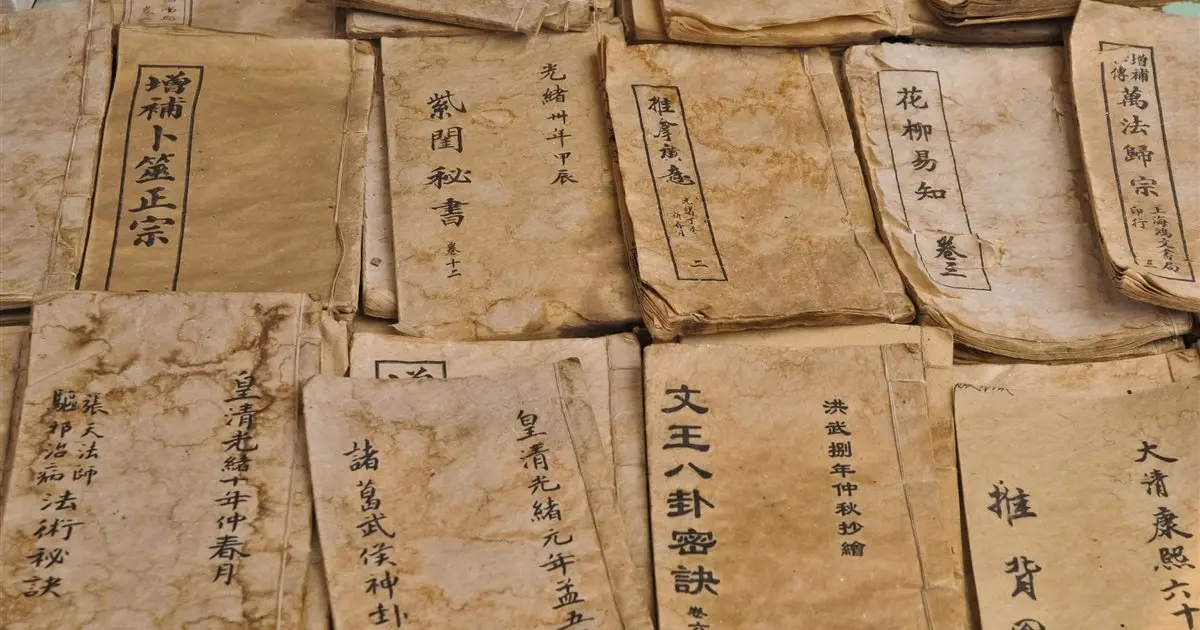 增補卜筮正宗
光緒卅年甲辰
紫閨秘書
卷十二
推拿廣意
光緒丁未
二
花柳易知
卷三
增補
傳
萬法歸宗
上海鴻文書局
印行
三
皇清光緒十年仲春月
張天法師
驅邪治病法術秘訣
皇清光緒元年孟五
諸葛武侯神卦
洪武捌年仲秋抄繪
文王八卦密訣
卷六
大清康熙六十
推背圖